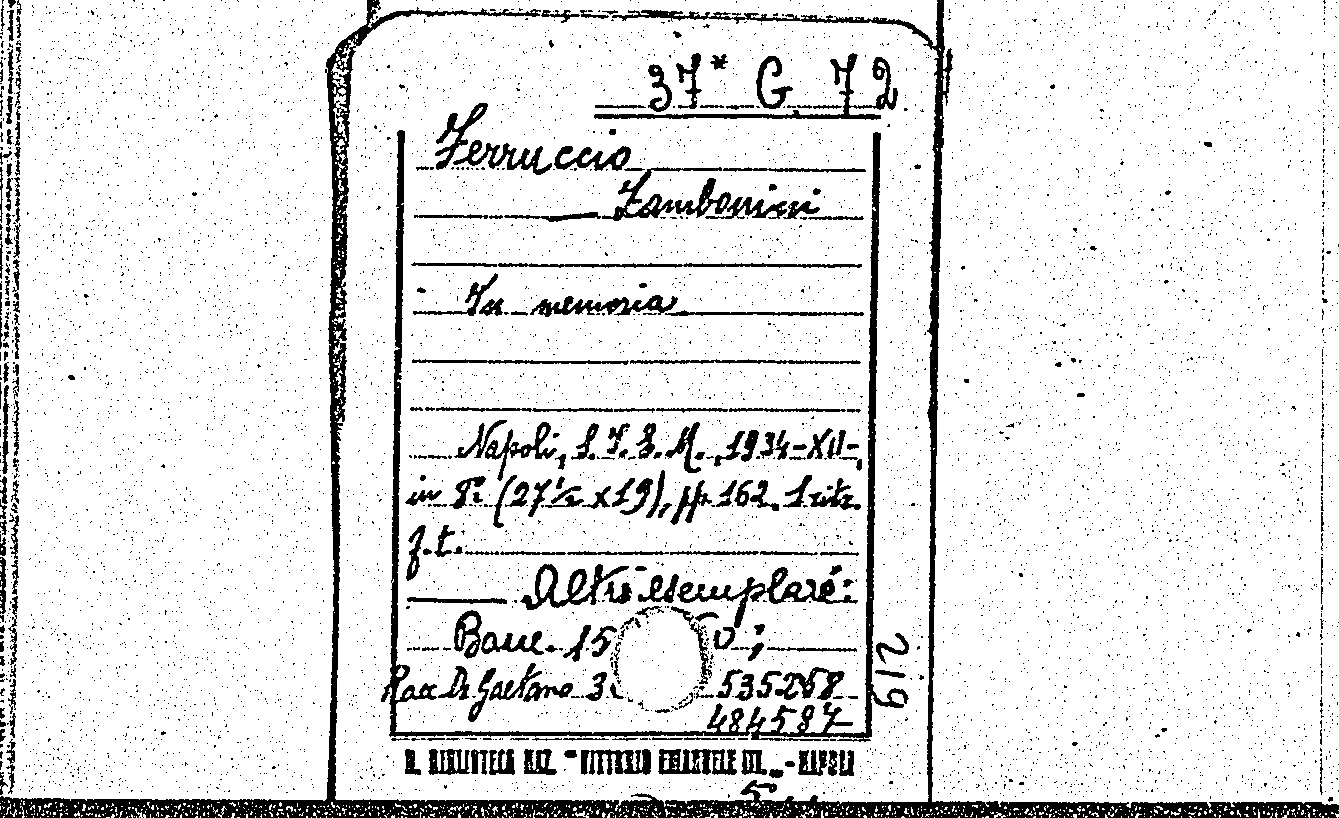 37* G 72
Ferruccio
Zambonini
In memoria
Napoli, S.I.E.M., 1934-XII-,
in 8º (27½ x 19), pp. 162. 1 ritr.
f.t.
Altro esemplare:
Banc. 15 0;
Racc De Gaetano 3 535268
484587
R. BIBLIOTECA NAZ. "VITTORIO EMANUELE III„ - NAPOLI
219